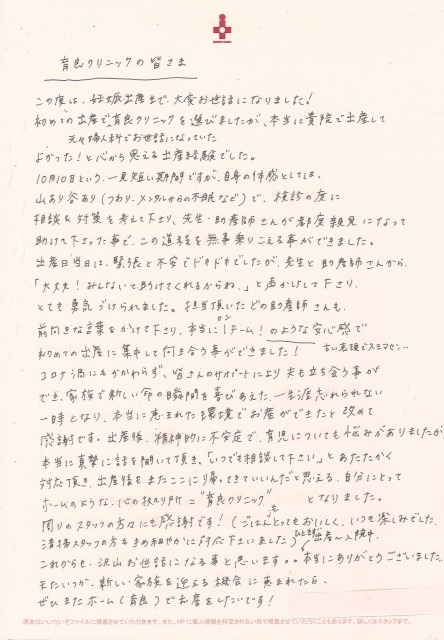 育良クリニックの皆さま
この度は、妊娠出産まで、大変お世話になりました!
初めての出産で、育良クリニックを選びましたが、本当に貴院で出産して
元々婦人科でお世話になっていた
よかった!と心から思える出産経験でした。
10月10日という、一見短い期間ですが、自身の体感としては、
山あり谷あり(つわり、メンタルからの不眠など)で、検診の度に
相談&対策を考えて下さり、先生・助産師さんが都度親身になって
助けて下さった事で、この道程を無事乗りこえる事ができました。
出産日当日は、緊張と不安でドキドキでしたが、先生と助産師さんから、
「大丈夫!みんないて助けてくれるからね。」と声かけして下さり、
とても勇気づけられました。担当頂いたどの助産師さんも、
前向きな言葉をかけて下さり、本当に1チーム!のような安心感で
ワン
初めての出産に集中して向き合う事ができました!
古い表現でスミマセン…
コロナ禍にもかかわらず、皆さんのサポートにより夫も立ち会う事が
でき、家族で新しい命の瞬間を喜びあえた、一生涯忘れられない
一時となり、本当に恵まれた環境でお産ができたと改めて
感謝です。出産後、精神的に不安定で、育児についても悩みがありましたが、
本当に真摯に話を聞いて頂き、「いつでも相談して下さい」とあたたかく
対応頂き、出産後もまたここに帰ってきていいんだと思える、自分にとって
ホームのような、心の拠り所="育良クリニック" となりました。
周りのスタッフの方々にも感謝です!(ごはんとってもおいしく、いつも楽しみでした。
も
清掃スタッフの方もきめ細やかに対応下さいました)
出産〜入院中。
これからも、沢山お世話になる事と思います。。本当にありがとうございました。
またいつか、新しい家族を迎える機会に恵まれたら、
ぜひまたホーム(育良)でお産をしたいです!
原本はいいたいそファイルに掲載させていただきます。また、HPに個人情報を特定されない形で掲載させていただくこともあります。詳しくはスタッフまで。